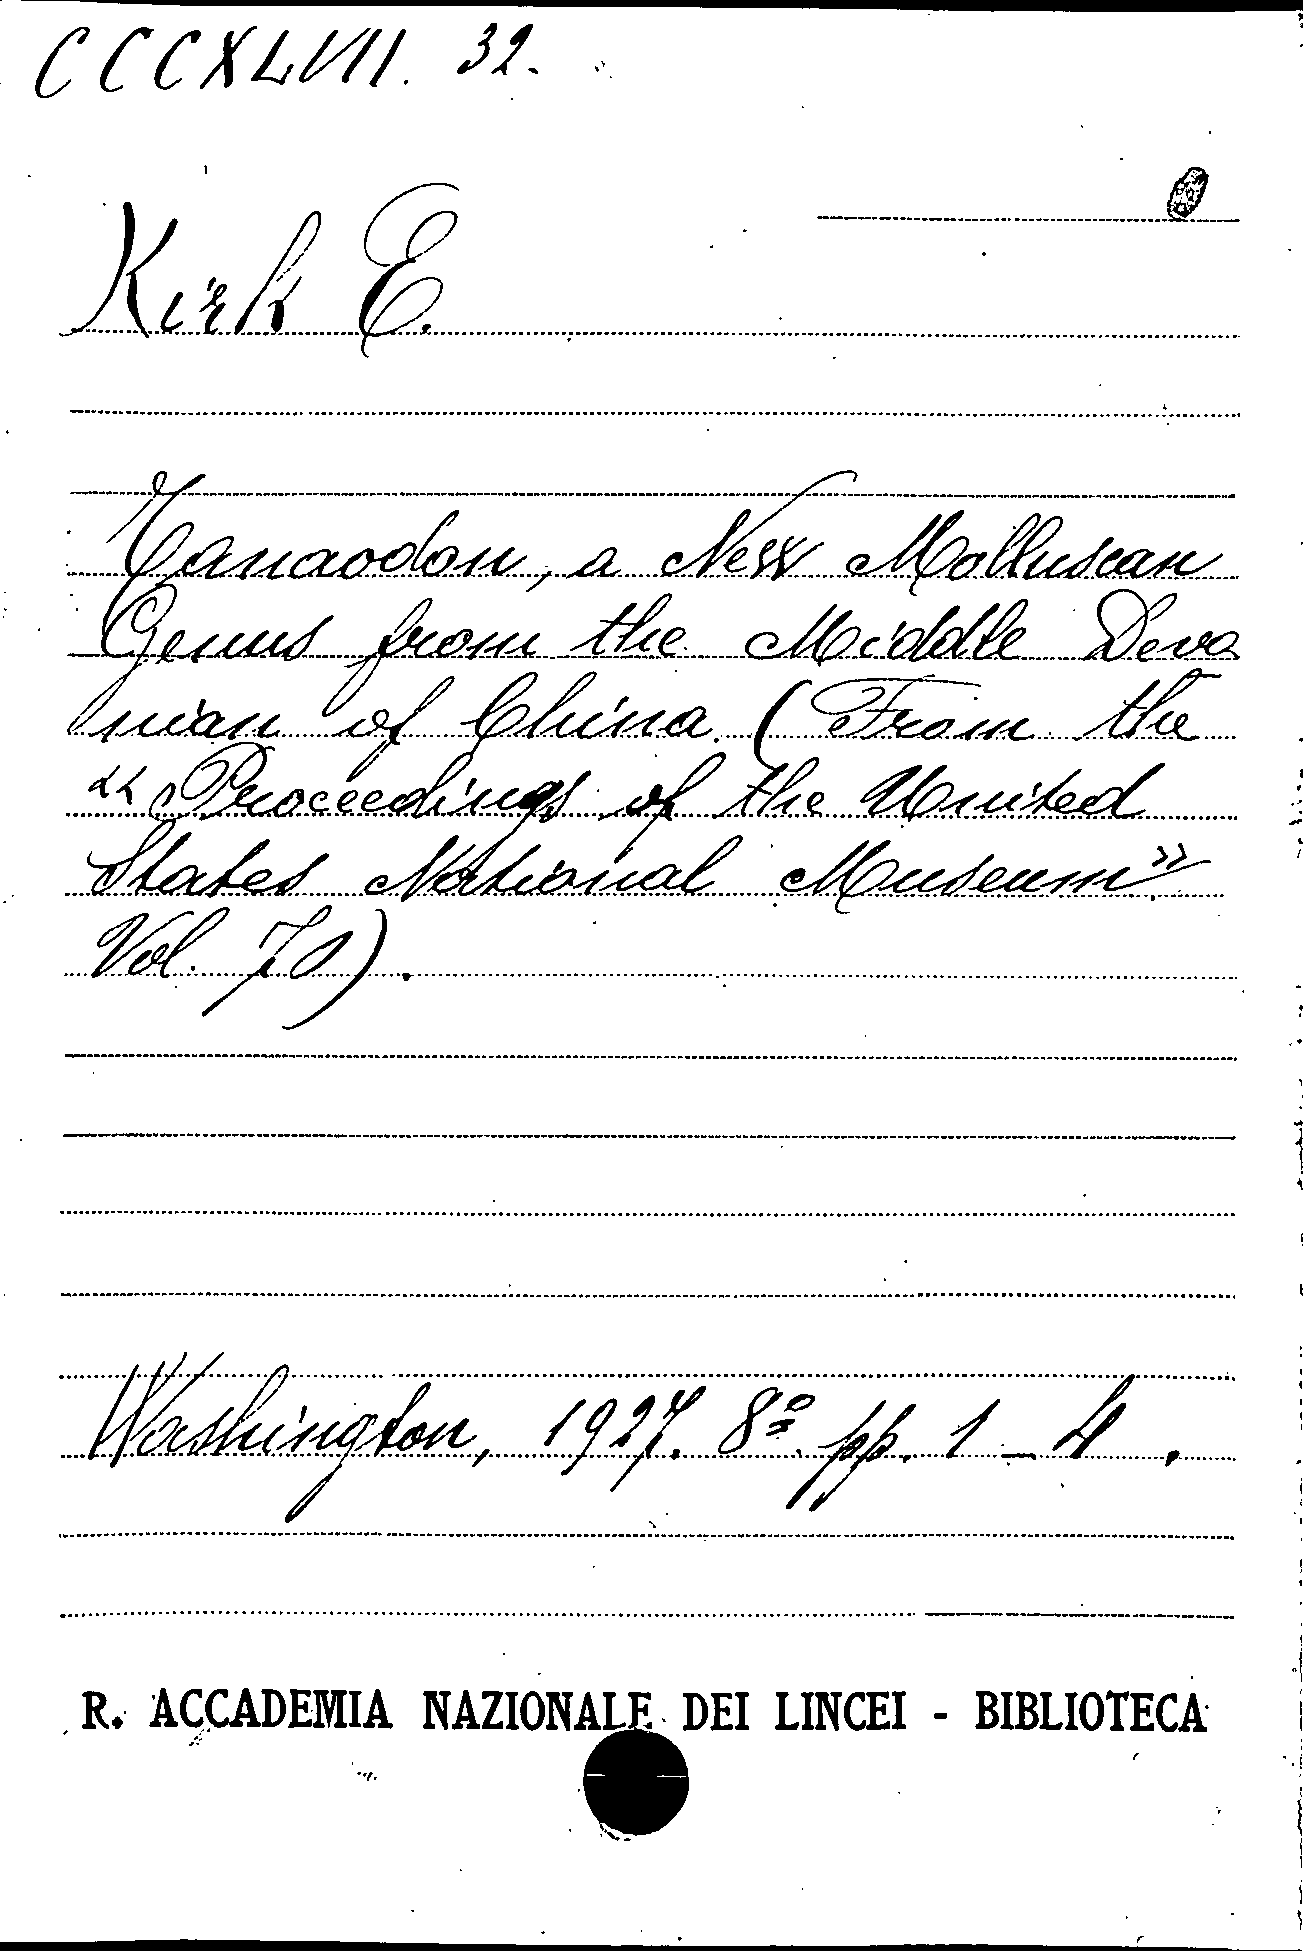 CCCXLVII. 32.
Kirk E.
Tanaodon, a New Molluscan
Genus from the Middle Devo
nian of China. (From the
« Proceedings of the United
States National Museum »
Vol. 70).
Washington, 1927. 8º pp. 1 - 4.
R. ACCADEMIA NAZIONALE DEI LINCEI - BIBLIOTECA